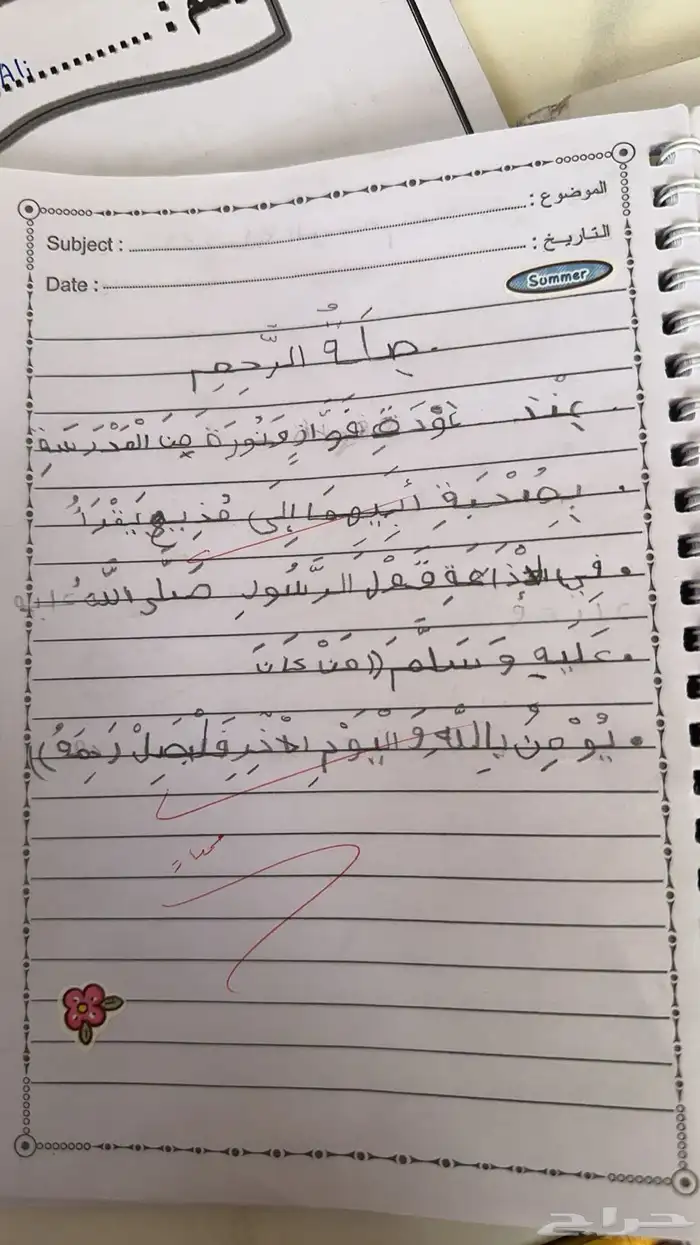 Ali
الموضوع :
Subject :
التاريخ :
Date :
Summer
صِلَةُ الرَّحِمِ
عِنْدَ عَوْدَةِ فَوَّازٍ وَنُورَةَ مِنَ الْمَدْرَسَةِ
بِصُحْبَةِ أَبِيهِمَا إِلَى مُذِيعٍ يَقْرَأُ
فِي الْإِذَاعَةِ قَوْلَ الرَّسُولِ صَلَّى اللَّهُ عَلَيْهِ
عَلَيهِ وَسَلَّمَ ((مَنْ كَانَ
يُؤْمِنُ بِاللَّهِ وَالْيَوْمِ الْآخِرِ فَلْيَصِلْ رَحِمَهُ))
حراج